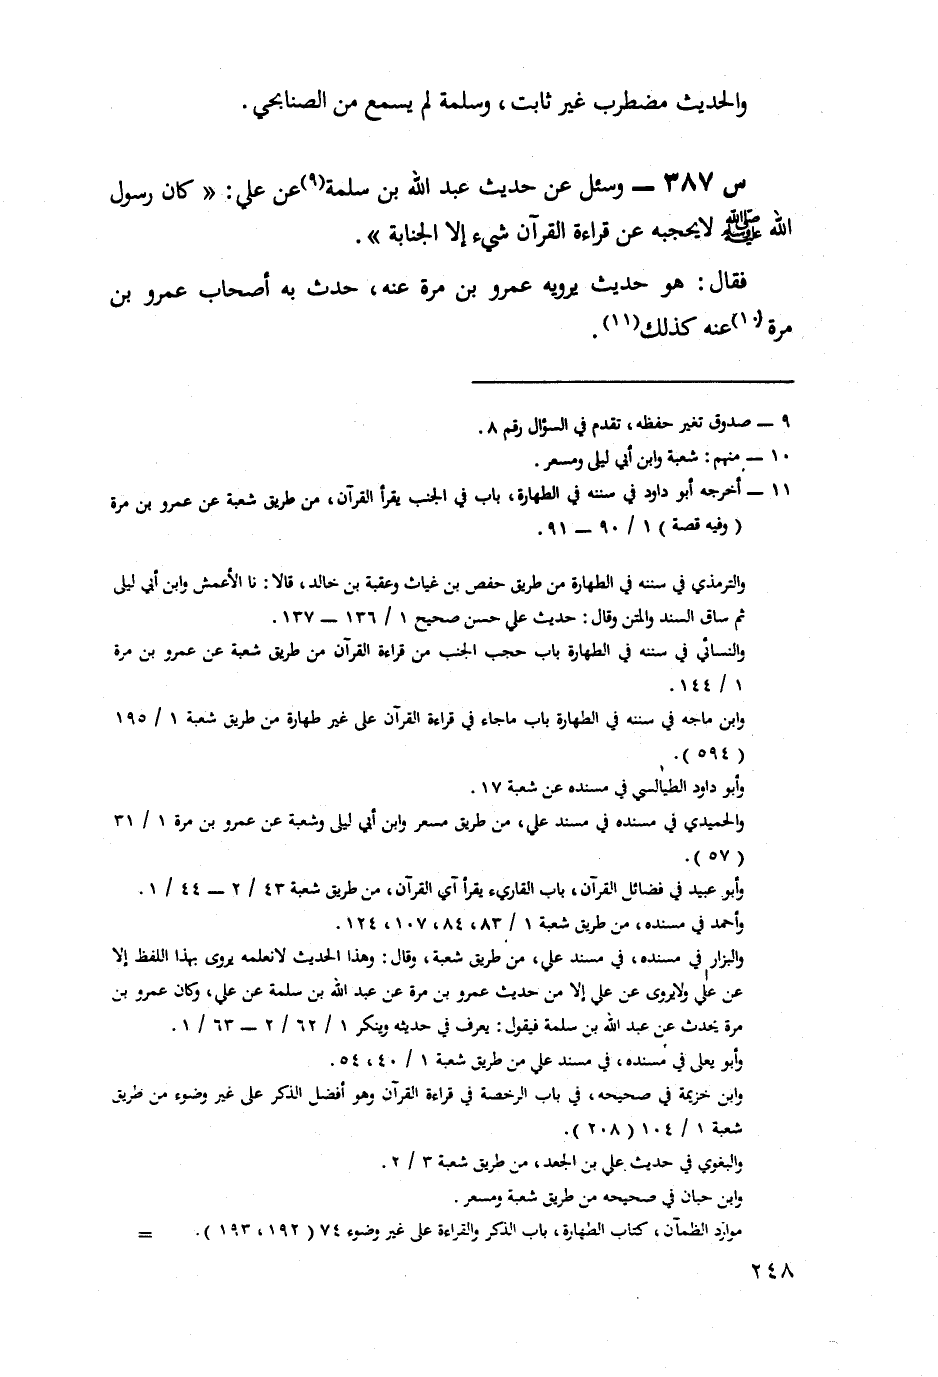 والحديث مضطرب غير ثابت ، وسلمة لم يسمع من الصنابحي .
س ٣٨٧ ــ وسئل عن حديث عبد الله بن سلمة(٩)عن علي : « كان رسول
الله ﷺ لايحجبه عن قراءة القرآن شيء إلا الجنابة » .
فقال : هو حديث يرويه عمرو بن مرة عنه ، حدث به أصحاب عمرو بن
مرة (١٠)عنه كذلك(١١).
٩ ــ صدوق تغير حفظه ، تقدم في السؤال رقم ٨ .
١٠ ــ منهم : شعبة وابن أبي ليلى ومسعر .
١١ ــ أخرجه أبو داود في سننه في الطهارة ، باب في الجنب يقرأ القرآن ، من طريق شعبة عن عمرو بن مرة
( وفيه قصة ) ١ / ٩٠ ــ ٩١ .
والترمذي في سننه في الطهارة من طريق حفص بن غياث وعقبة بن خالد ، قالا : نا الأعمش وابن أبي ليلى
ثم ساق السند والمتن وقال : حديث علي حسن صحيح ١ / ١٣٦ ــ ١٣٧ .
والنسائي في سننه في الطهارة باب حجب الجنب من قراءة القرآن من طريق شعبة عن عمرو بن مرة
١ / ١٤٤ .
وابن ماجه في سننه في الطهارة باب ماجاء في قراءة القرآن على غير طهارة من طريق شعبة ١ / ١٩٥
( ٥٩٤ ) .
وأبو داود الطيالسي في مسنده عن شعبة ١٧ .
والحميدي في مسنده في مسند علي ، من طريق مسعر وابن أبي ليلى وشعبة عن عمرو بن مرة ١ / ٣١
( ٥٧ ) .
وأبو عبيد في فضائل القرآن ، باب القاريء يقرأ آي القرآن ، من طريق شعبة ٤٣ / ٢ ــ ٤٤ / ١ .
وأحمد في مسنده ، من طريق شعبة ١ / ٨٣ ، ٨٤ ، ١٠٧ ، ١٢٤ .
والبزار في مسنده ، في مسند علي ، من طريق شعبة ، وقال : وهذا الحديث لانعلمه يروى بهذا اللفظ إلا
عن علي ولايروى عن علي إلا من حديث عمرو بن مرة عن عبد الله بن سلمة عن علي ، وكان عمرو بن
مرة يحدث عن عبد الله بن سلمة فيقول : يعرف في حديثه وينكر ١ / ٦٢ / ٢ ــ ٦٣ / ١ .
وأبو يعلى في مسنده ، في مسند علي من طريق شعبة ١ / ٤٠ ، ٥٤ .
وابن خزيمة في صحيحه ، في باب الرخصة في قراءة القرآن وهو أفضل الذكر على غير وضوء من طريق
شعبة ١ / ١٠٤ ( ٢٠٨ ) .
والبغوي في حديث علي بن الجعد ، من طريق شعبة ٣ / ٢ .
وابن حبان في صحيحه من طريق شعبة ومسعر .
موارد الظمآن ، كتاب الطهارة ، باب الذكر والقراءة على غير وضوء ٧٤ ( ١٩٢ ، ١٩٣ ) . =
٢٤٨